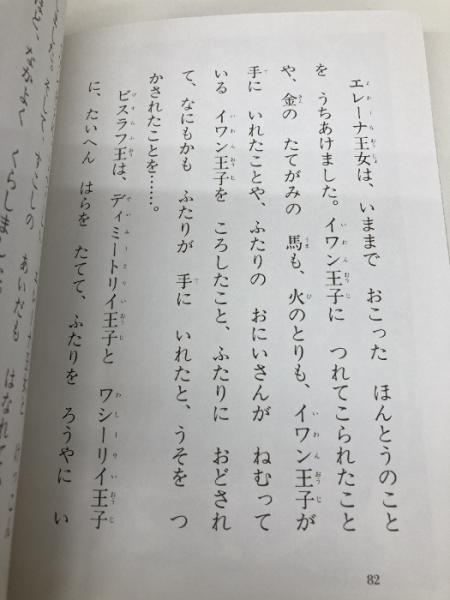 エレーナ王女は、いままで おこった ほんとうのこと
を うちあけました。イワン王子に つれてこられたこと
や、金の たてがみの 馬も、火のとりも、イワン王子が
手に いれたことや、ふたりの おにいさんが ねむって
いる イワン王子を ころしたこと、ふたりに おどされ
て、なにもかも ふたりが 手に いれたと、うそを つ
かされたことを……。
ビスラフ王は、ディミートリイ王子と ワシーリイ王子
に、たいへん はらを たてて、ふたりを ろうやに い
82
あいだも はなれて
なかよく くらしました